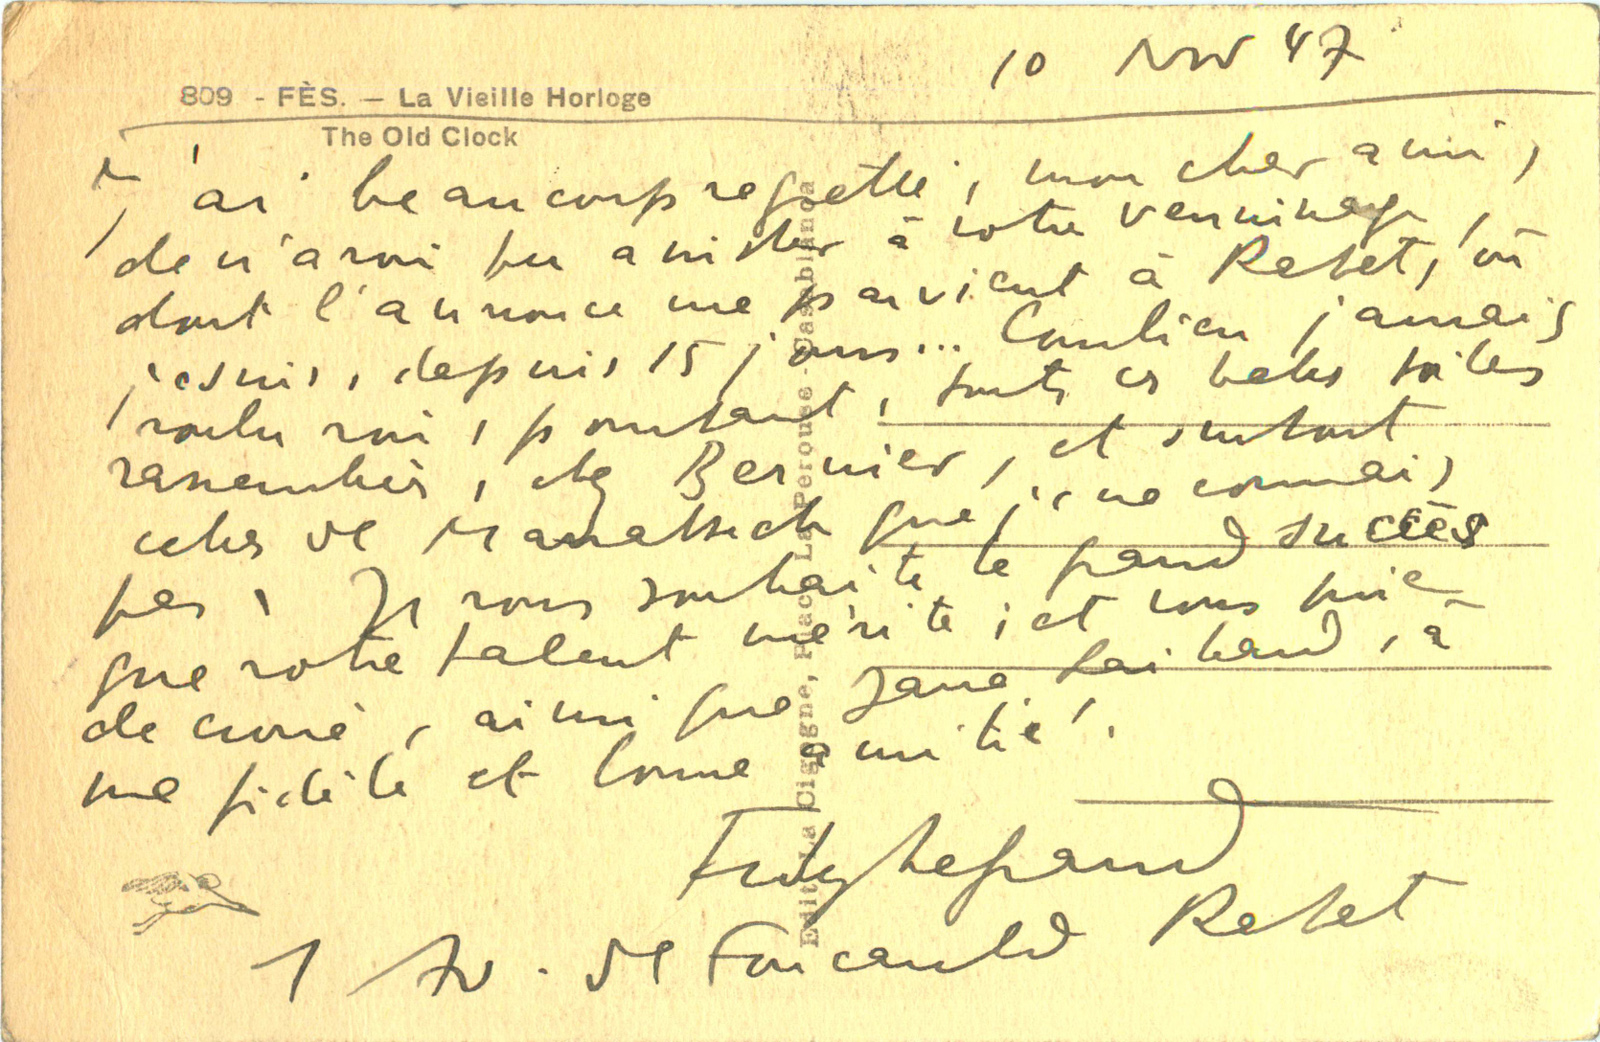 10 Nov 47
809 - FÈS. — La Vieille Horloge
The Old Clock
J'ai beaucoup regretté, mon cher ami,
de n'avoir pu assister à votre vernissage,
dont l'annonce me parvient à Rabat, où
je suis, depuis 15 jours... Combien j'aurais
voulu voir, pourtant, toutes ces belles toiles
rassemblées, chez Bernier, et surtout
celles de que je ne connais
pas. Je vous souhaite le grand succès
que votre talent mérite, et vous prie
de croire, ainsi que à
ma fidèle et bonne amitié.
1 Av. de Foucauld Rabat
Edit. La Cigogne, Place La Pérouse - Casablanca